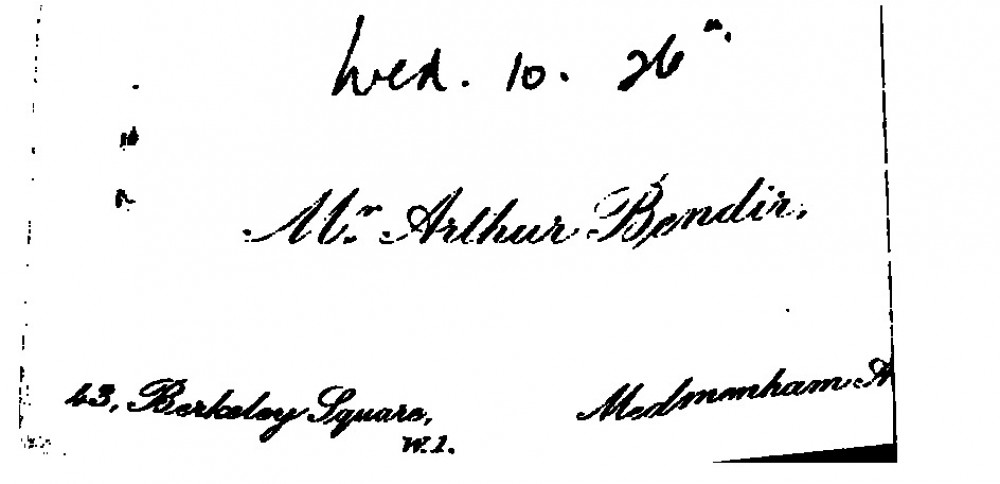 Wed. 10. 26th.
Mr. Arthur Bendir,
43, Berkeley Square,
W.1.
Medmenham A